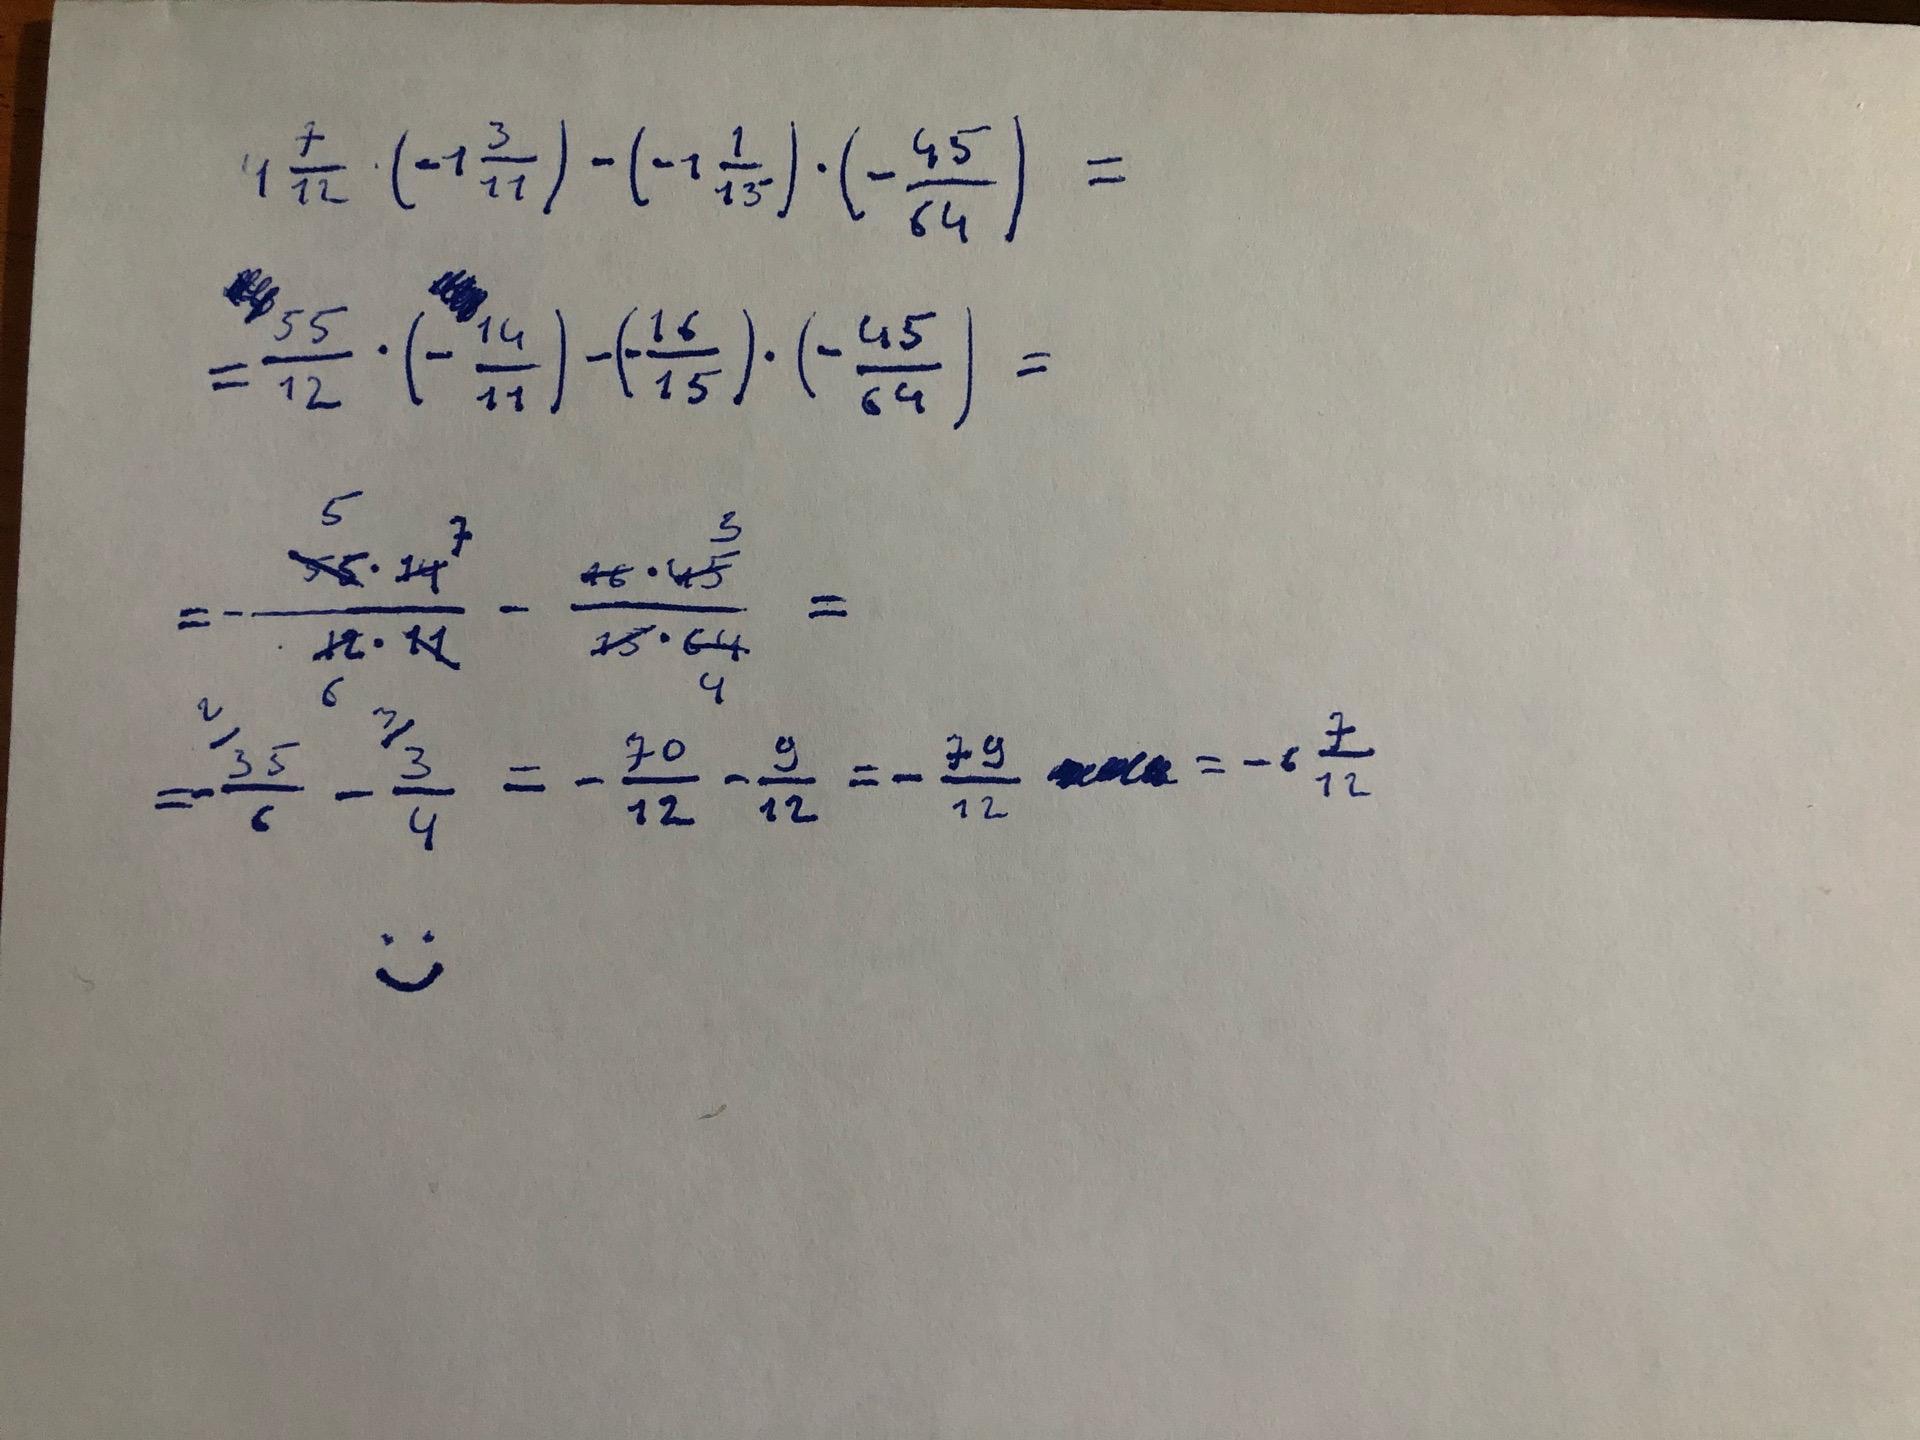 4 7/12 · (-1 3/11) - (-1 1/15) · (-45/64) =
= 55/12 · (-14/11) - (-16/15) · (-45/64) =
= - 55·14/12·11 - 16·45/15·64 =
5 7 3
6 4
2/ 3/
= - 35/6 - 3/4 = - 70/12 - 9/12 = - 79/12 = -6 7/12